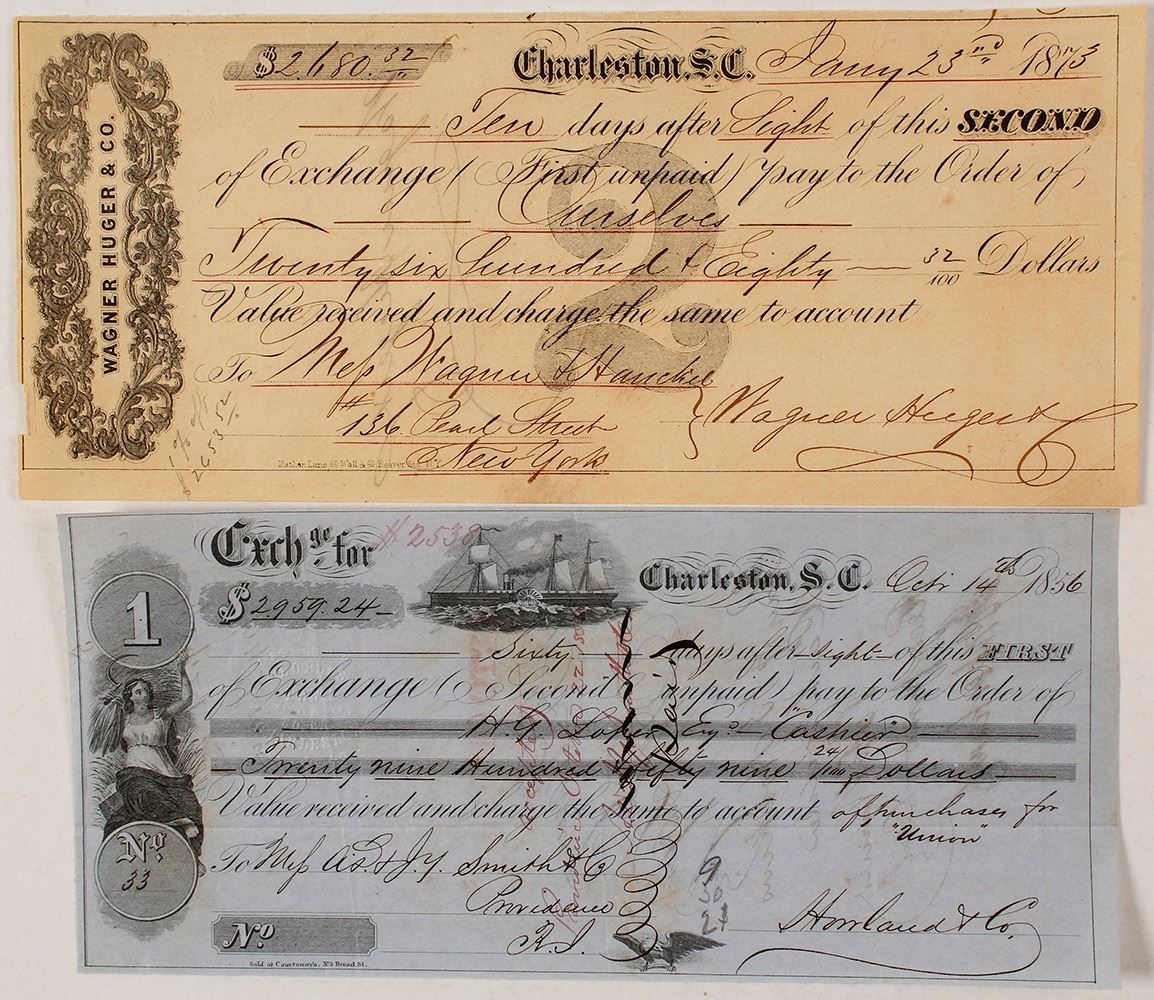 WAGNER HUGER & CO.
$2,680.32/
Charleston, S.C. Jany 23rd 1873
Ten days after Sight of this SECOND
of Exchange (First unpaid) pay to the Order of
Ourselves
2
Twenty six hundred & Eighty — 32/100 Dollars
Value received and charge the same to account
To Mess Wagner & Hanckel
# 136 Pearl Street
New York
Wagner Huger & Co
Nathan Lane 69 Wall & Beaver
Exchge for $2538
$2959.24
Charleston, S.C. Octr 14th 1856
1
Sixty days after sight of this FIRST
of Exchange (Second unpaid) pay to the Order of
H. G. Loper Esqr "Cashier"
Twenty nine Hundred & fifty nine 24/100 Dollars
Value received and charge the same to account of purchases for
"Union"
To Mess A.D. & J.Y. Smith & Co
Providence
R.I.
Paid
No 33
No
9
24
Howland & Co.
Sold at Courtenay's, No 3 Broad St.